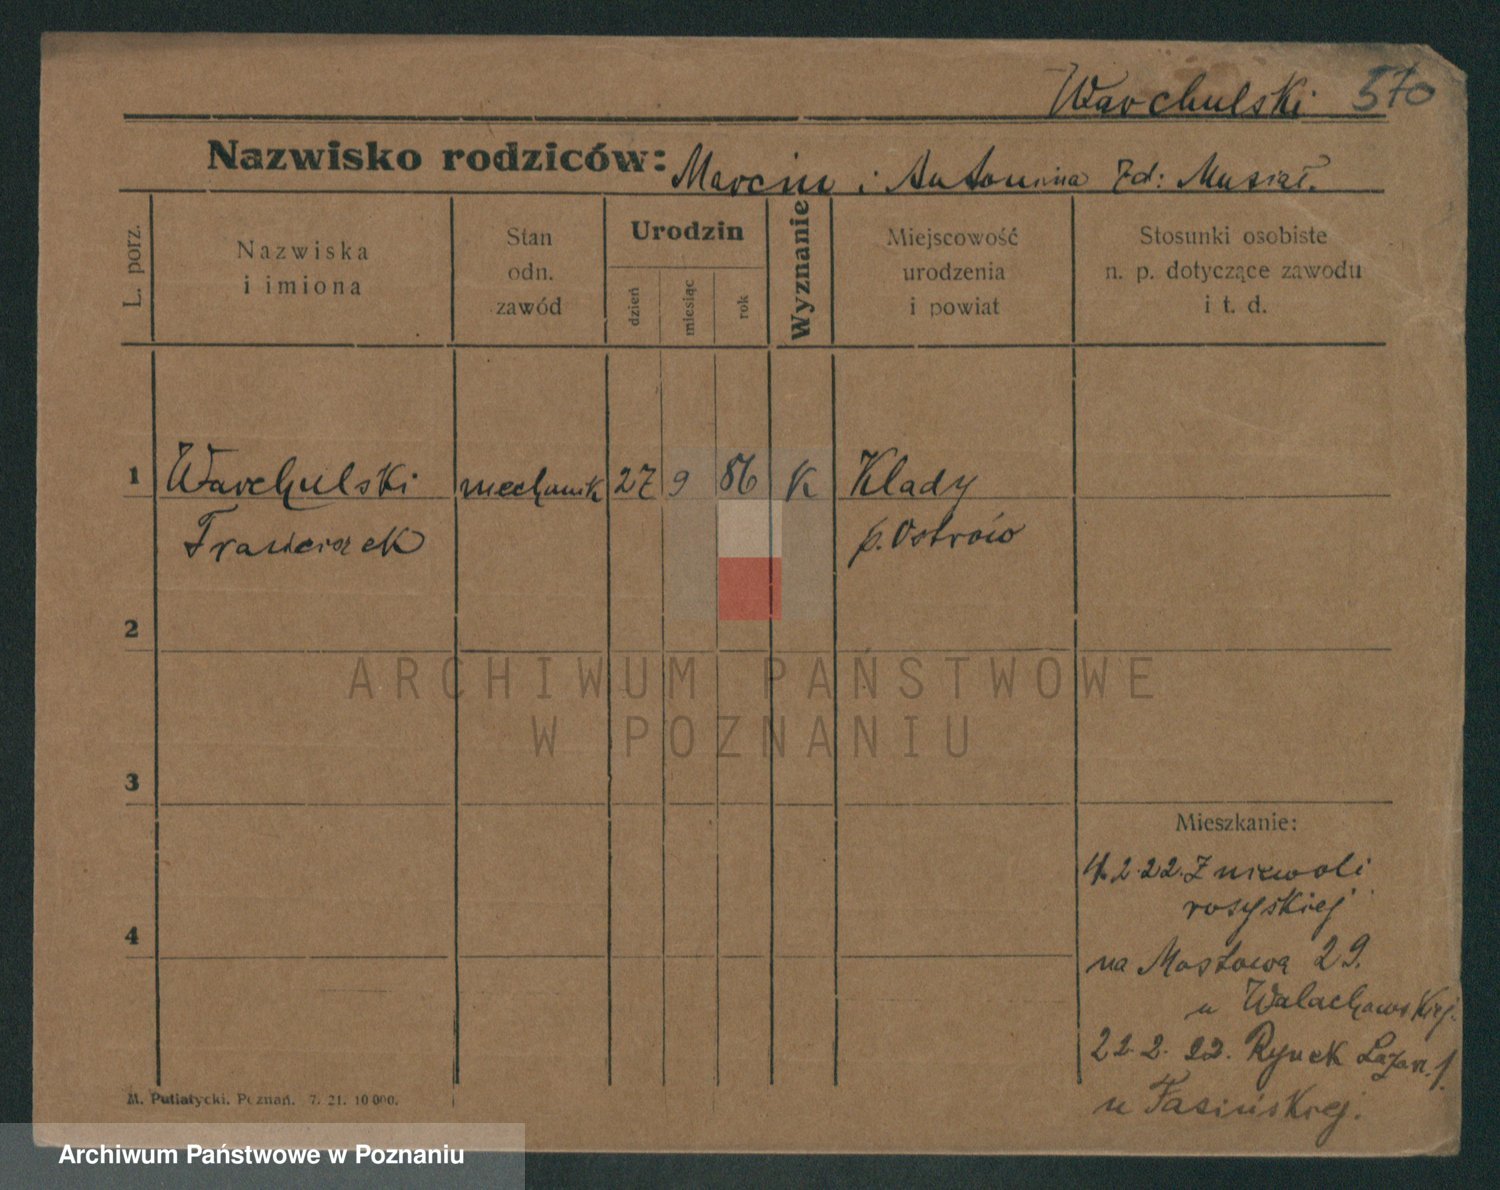 Warchulski 570
Nazwisko rodziców: Marcin i Antonina zd: Musiał.
L. porz.
Nazwiska
i imiona
Stan
odn.
zawód
Urodzin
dzień
miesiąc
rok
Wyznanie
Miejscowość
urodzenia
i powiat
Stosunki osobiste
n. p. dotyczące zawodu
i t. d.
1 Warchulski mechanik 27 9 86 K Klady
Franciszek p. Ostrów
2
3
4
Mieszkanie:
2.22. Z niewoli
rosyskiej
na Mostowa 29.
u Walachowskiej.
22.2.22. Rynek Lazar. 1.
u Fasińskiej.
M. Putiatycki, Poznań. 7. 21. 10 000.
ARCHIWUM PAŃSTWOWE
W POZNANIU
Archiwum Państwowe w Poznaniu